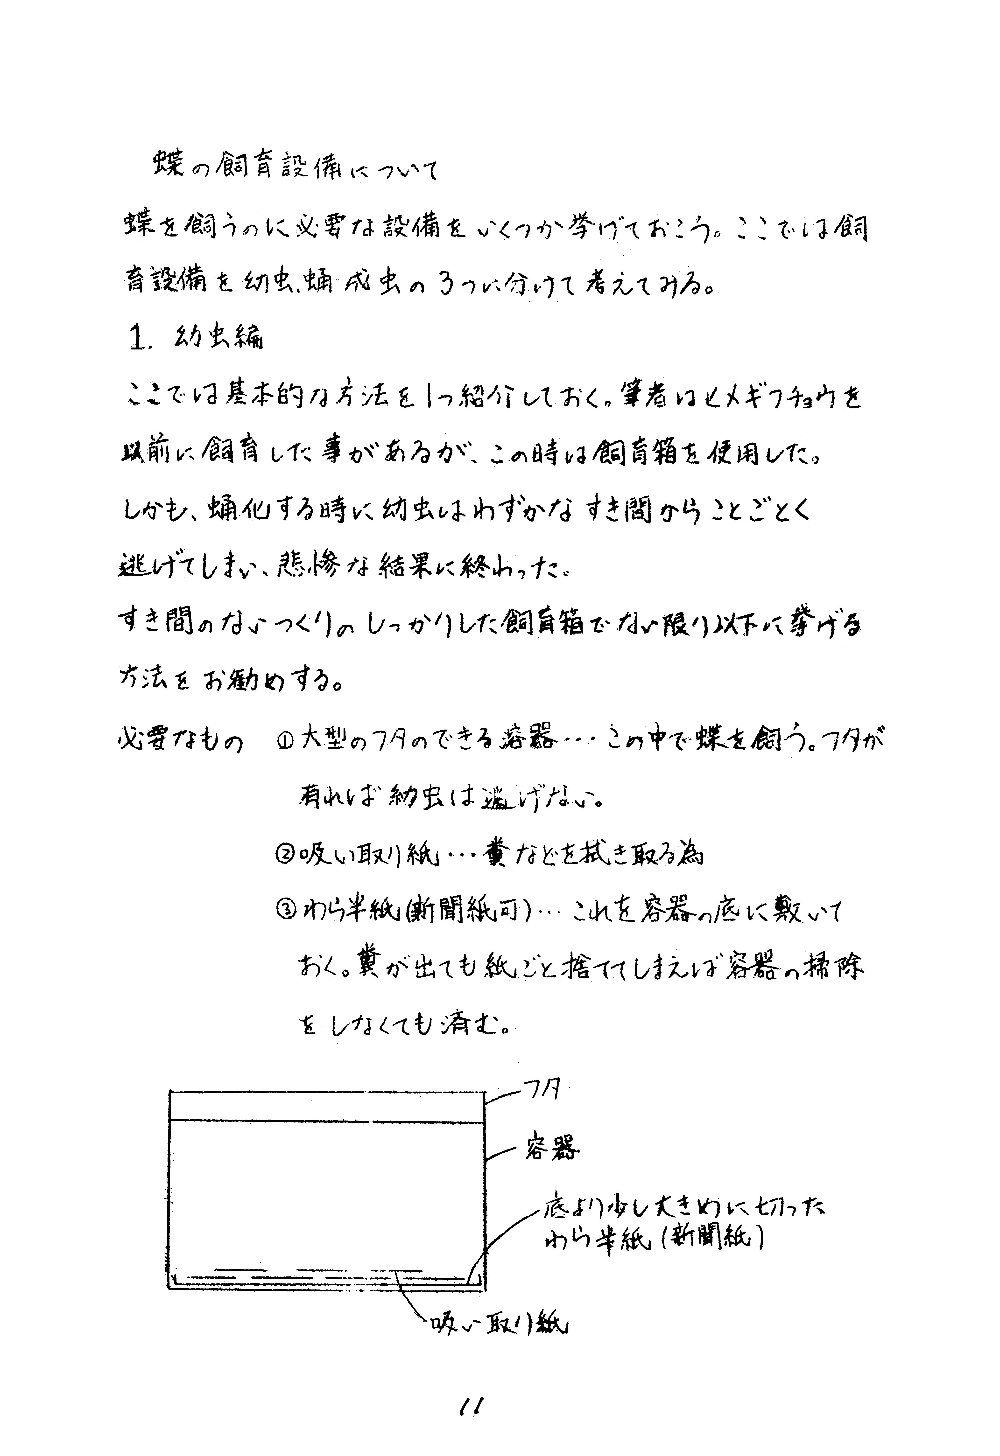 蝶の飼育設備について
蝶を飼うのに必要な設備をいくつか挙げておこう。ここでは飼
育設備を幼虫、蛹、成虫の3つに分けて考えてみる。
1. 幼虫編
ここでは基本的な方法を1つ紹介しておく。筆者はヒメギフチョウを
以前に飼育した事があるが、この時は飼育箱を使用した。
しかも、蛹化する時に幼虫はわずかなすき間からことごとく
逃げてしまい、悲惨な結果に終わった。
すき間のないつくりのしっかりした飼育箱でない限り以下に挙げる
方法をお勧めする。
必要なもの ①大型のフタのできる容器…この中で蝶を飼う。フタが
有れば幼虫は逃げない。
②吸い取り紙…糞などを拭き取る為
③わら半紙(新聞紙可)…これを容器の底に敷いて
おく。糞が出ても紙ごと捨ててしまえば容器の掃除
をしなくても済む。
フタ
容器
底より少し大きめに切った
わら半紙(新聞紙)
吸い取り紙
11